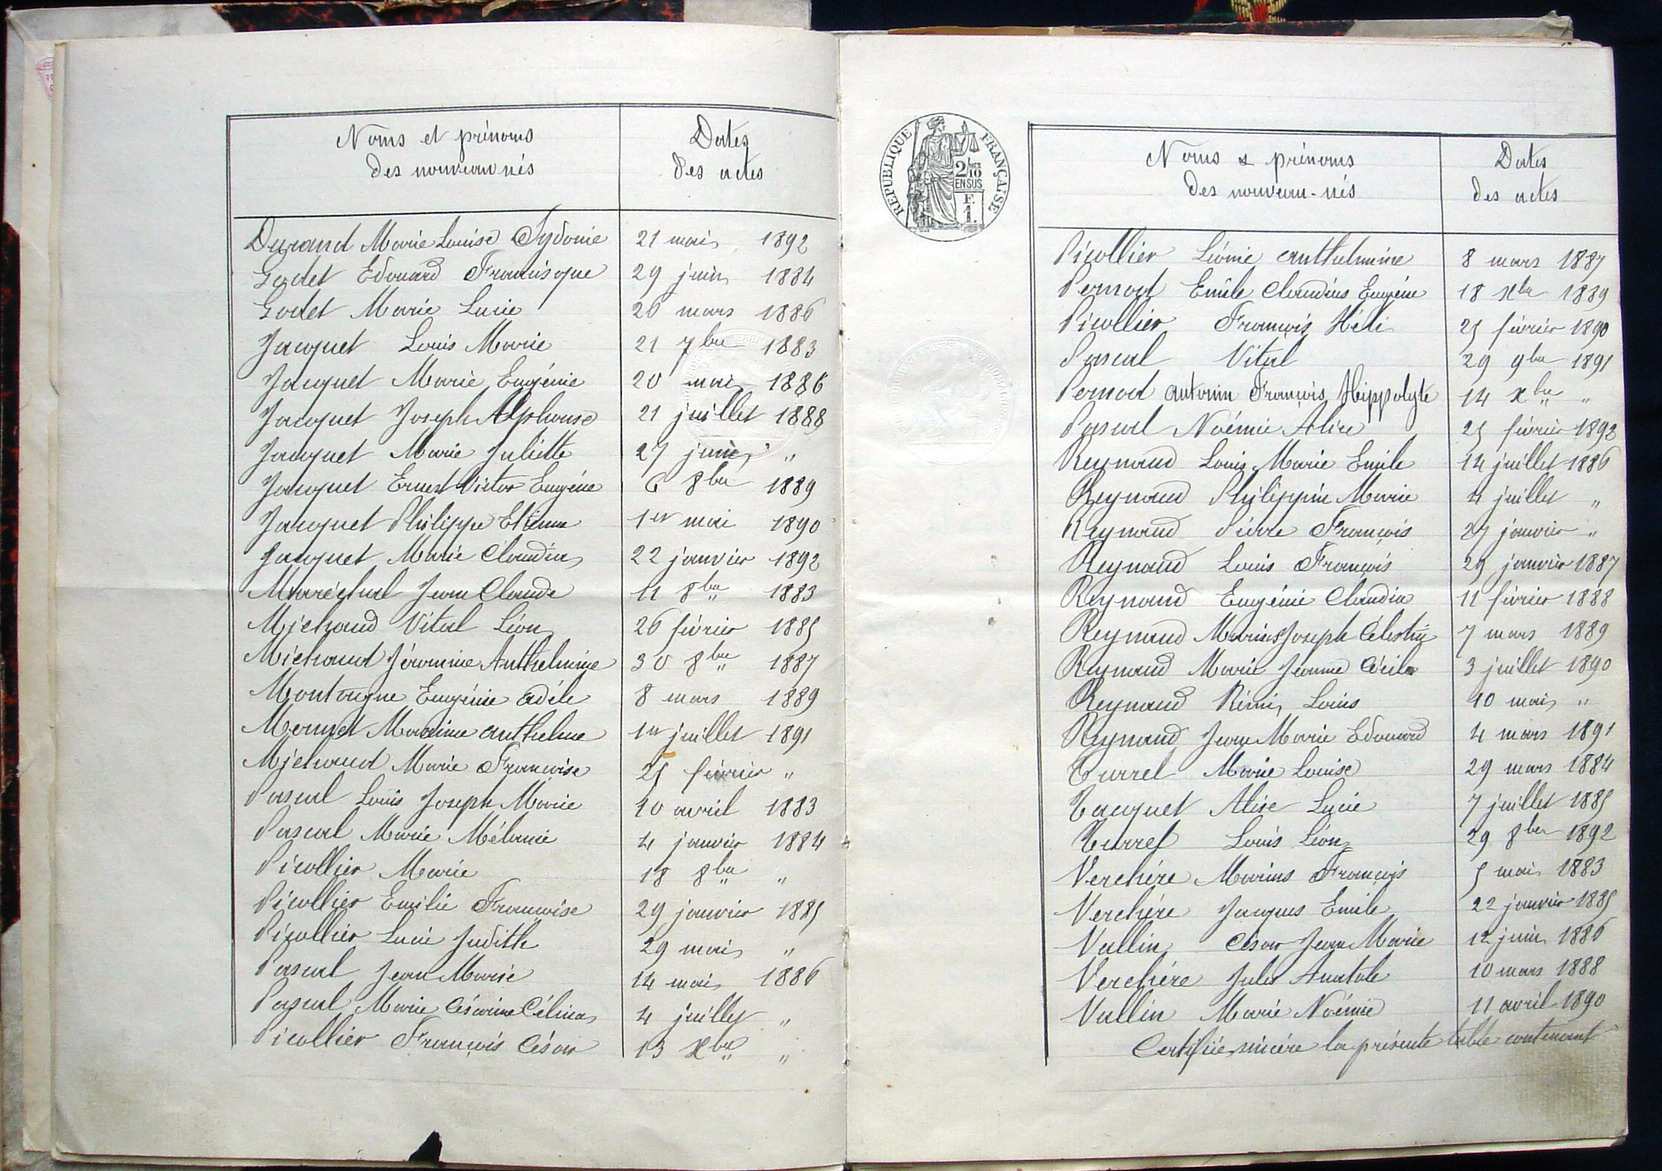 Noms et prénoms
des nouveau nés
Dates
des actes
Durand Marie Louise Sydonie 21 mai 1892
Godet Edouard Francisque 29 juin 1884
Godet Marie Lucie 26 mars 1886
Jacquet Louis Marie 21 7bre 1883
Jacquet Marie Eugénie 20 mai 1886
Jacquet Joseph Alphonse 21 juillet 1888
Jacquet Marie Juliette 27 juin "
Jacquet Ernest Victor Eugène 6 8bre 1889
Jacquet Philippe Etienne 1er mai 1890
Jacquet Marie Claudia 22 janvier 1892
Maréchal Jean Claude 11 8bre 1883
Michaud Vital Léon 26 février 1885
Michaud Jéromine Anthelmine 30 8bre 1887
Montagne Eugénie Adèle 8 mars 1889
Maxime anthelme 1er juillet 1891
Michaud Marie Françoise 25 février "
Pascal Louis Joseph Marie 10 avril 1883
Pascal Marie Mélanie 4 janvier 1884
Picollier Marie 18 8bre "
Picollier Emilie Françoise 29 janvier 1885
Picollier Lucie Judith 29 mai "
Pascal Jean Marie 14 mai 1886
Pascal Marie Césarine Célina 4 juillet "
Picollier François César 13 Xbre "
REPUBLIQUE FRANÇAISE
2/10
EN SUS
F.
1.
Noms & prénoms
des nouveau-nés
Dates
des actes
Picollier Léonie anthelmine 8 mars 1887
Pernod Emile Claudius Eugène 18 Xbre 1889
Picollier François Héli 25 février 1890
Pascal Vital 29 9bre 1891
Pernod antonin François Hippolyte 14 Xbre "
Pascal Noémie Aline 25 février 1892
Reynaud Louis Marie Emile 14 juillet 1886
Reynaud Philippine Marie 4 juillet "
Reynaud Pierre François 27 janvier "
Reynaud Louis François 29 janvier 1887
Reynaud Eugénie Claudia 11 février 1888
Reynaud Marius Joseph Célestin 7 mars 1889
Reynaud Marie Jeanne Cécile 3 juillet 1890
Reynaud Rémi Louis 10 mai "
Reynaud Jean Marie Edouard 4 mars 1891
Turrel Marie Louise 29 mars 1884
Tacquet Alice Lucie 7 juillet 1885
Turrel Louis Léon 29 8bre 1892
Verchére Marius François 5 mai 1883
Verchére Jacques Emile 22 janvier 1885
Vallin César Jean Marie 12 juin 1886
Verchére Jules Anatole 10 mars 1888
Vallin Marie Noémie 11 avril 1890
Certifiée sincère la présente table contenant